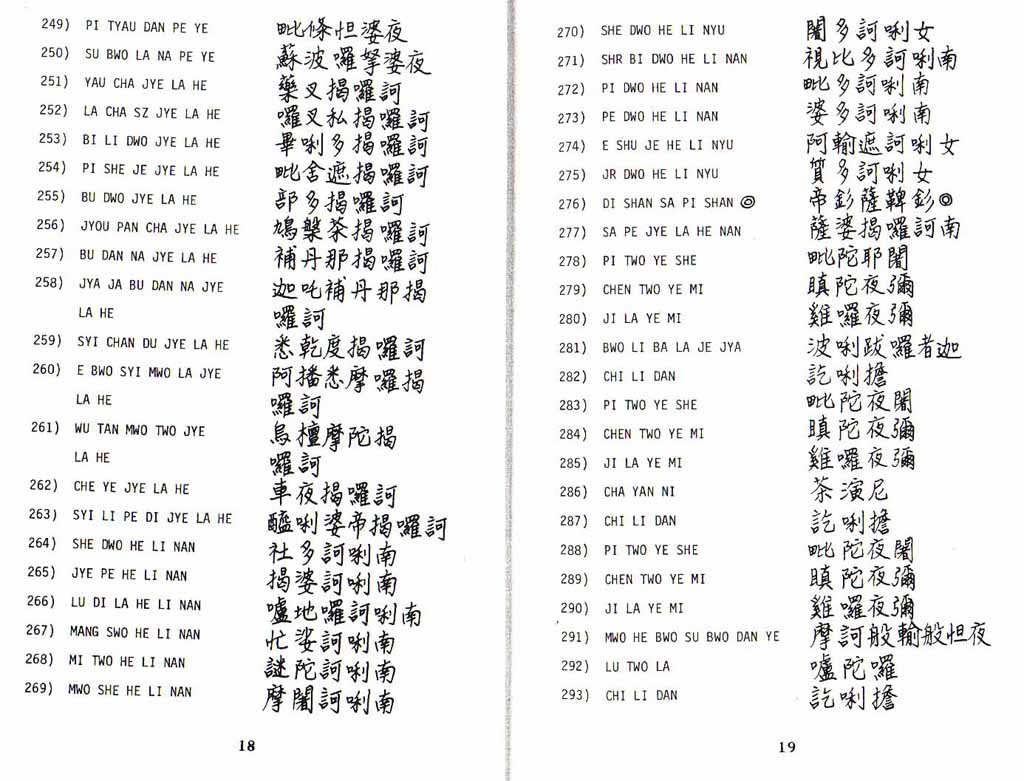 249) PI TYAU DAN PE YE 毗條怛婆夜
250) SU BWO LA NA PE YE 蘇波囉拏婆夜
251) YAU CHA JYE LA HE 藥叉揭囉訶
252) LA CHA SZ JYE LA HE 囉叉私揭囉訶
253) BI LI DWO JYE LA HE 畢唎多揭囉訶
254) PI SHE JE JYE LA HE 毗舍遮揭囉訶
255) BU DWO JYE LA HE 部多揭囉訶
256) JYOU PAN CHA JYE LA HE 鳩槃茶揭囉訶
257) BU DAN NA JYE LA HE 補丹那揭囉訶
258) JYA JA BU DAN NA JYE 迦吒補丹那揭
LA HE 囉訶
259) SYI CHAN DU JYE LA HE 悉乾度揭囉訶
260) E BWO SYI MWO LA JYE 阿播悉摩囉揭
LA HE 囉訶
261) WU TAN MWO TWO JYE 烏檀摩陀揭
LA HE 囉訶
262) CHE YE JYE LA HE 車夜揭囉訶
263) SYI LI PE DI JYE LA HE 醯唎婆帝揭囉訶
264) SHE DWO HE LI NAN 社多訶唎南
265) JYE PE HE LI NAN 揭婆訶唎南
266) LU DI LA HE LI NAN 嚧地囉訶唎南
267) MANG SWO HE LI NAN 忙娑訶唎南
268) MI TWO HE LI NAN 謎陀訶唎南
269) MWO SHE HE LI NAN 摩闍訶唎南
18
270) SHE DWO HE LI NYU 闍多訶唎女
271) SHR BI DWO HE LI NAN 視比多訶唎南
272) PI DWO HE LI NAN 毗多訶唎南
273) PE DWO HE LI NAN 婆多訶唎南
274) E SHU JE HE LI NYU 阿輸遮訶唎女
275) JR DWO HE LI NYU 質多訶唎女
276) DI SHAN SA PI SHAN ◎ 帝釤薩鞞釤◎
277) SA PE JYE LA HE NAN 薩婆揭囉訶南
278) PI TWO YE SHE 毗陀耶闍
279) CHEN TWO YE MI 瞋陀夜彌
280) JI LA YE MI 雞囉夜彌
281) BWO LI BA LA JE JYA 波唎跋囉者迦
282) CHI LI DAN 訖唎擔
283) PI TWO YE SHE 毗陀夜闍
284) CHEN TWO YE MI 瞋陀夜彌
285) JI LA YE MI 雞囉夜彌
286) CHA YAN NI 茶演尼
287) CHI LI DAN 訖唎擔
288) PI TWO YE SHE 毗陀夜闍
289) CHEN TWO YE MI 瞋陀夜彌
290) JI LA YE MI 雞囉夜彌
291) MWO HE BWO SU BWO DAN YE 摩訶般輸般怛夜
292) LU TWO LA 嚧陀囉
293) CHI LI DAN 訖唎擔
19